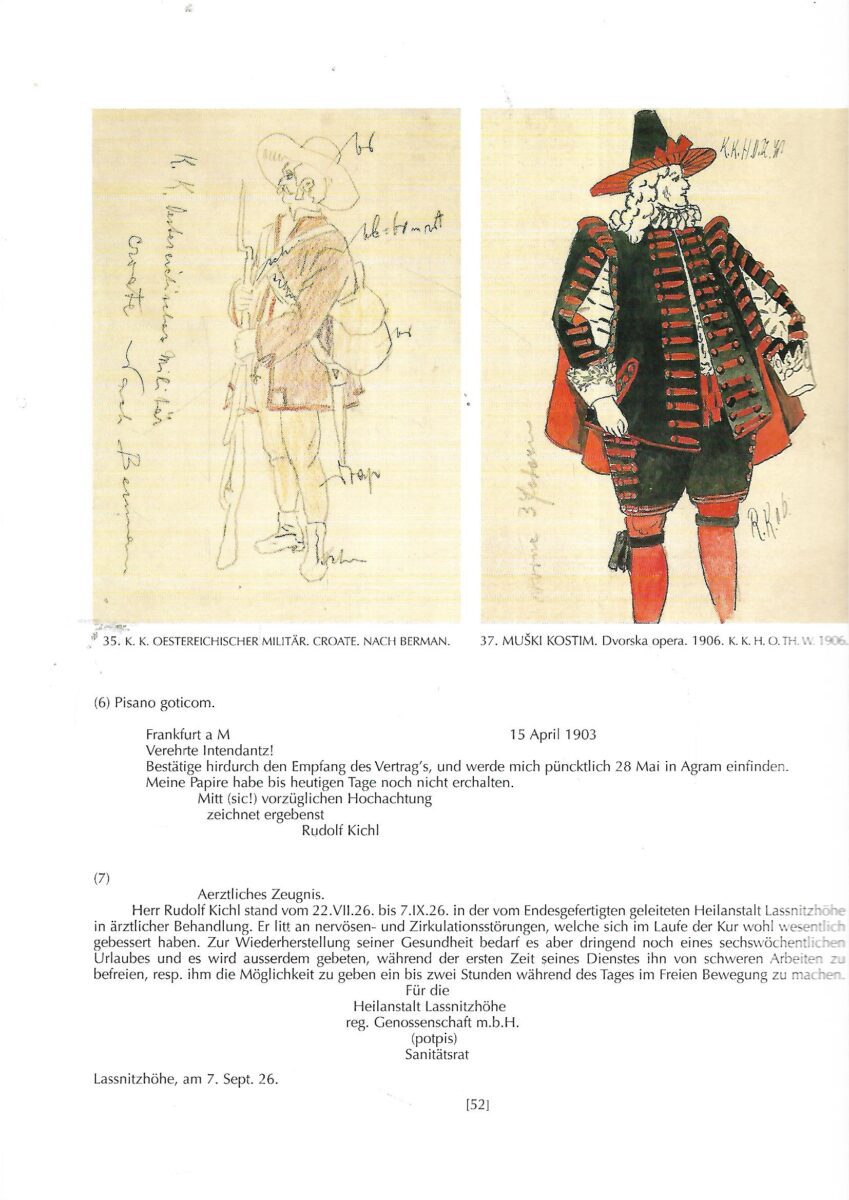 K. K. Oestereichischer Militär
Croate Nach Berman
K.K.H.O.TH.W.
35. K. K. OESTEREICHISCHER MILITÄR. CROATE. NACH BERMAN.
37. MUŠKI KOSTIM. Dvorska opera. 1906. K. K. H. O. TH. W. 1906.
(6) Pisano goticom.
Frankfurt a M 15 April 1903
Verehrte Intendantz!
Bestätige hirdurch den Empfang des Vertrag's, und werde mich püncktlich 28 Mai in Agram einfinden.
Meine Papire habe bis heutigen Tage noch nicht erchalten.
Mitt (sic!) vorzüglichen Hochachtung
zeichnet ergebenst
Rudolf Kichl
(7)
Aerztliches Zeugnis.
Herr Rudolf Kichl stand vom 22.VII.26. bis 7.IX.26. in der vom Endesgefertigten geleiteten Heilanstalt Lassnitzhöhe
in ärztlicher Behandlung. Er litt an nervösen- und Zirkulationsstörungen, welche sich im Laufe der Kur wohl wesentlich
gebessert haben. Zur Wiederherstellung seiner Gesundheit bedarf es aber dringend noch eines sechswöchentlichen
Urlaubes und es wird ausserdem gebeten, während der ersten Zeit seines Dienstes ihn von schweren Arbeiten zu
befreien, resp. ihm die Möglichkeit zu geben ein bis zwei Stunden während des Tages im Freien Bewegung zu machen.
Für die
Heilanstalt Lassnitzhöhe
reg. Genossenschaft m.b.H.
(potpis)
Sanitätsrat
Lassnitzhöhe, am 7. Sept. 26.
[52]